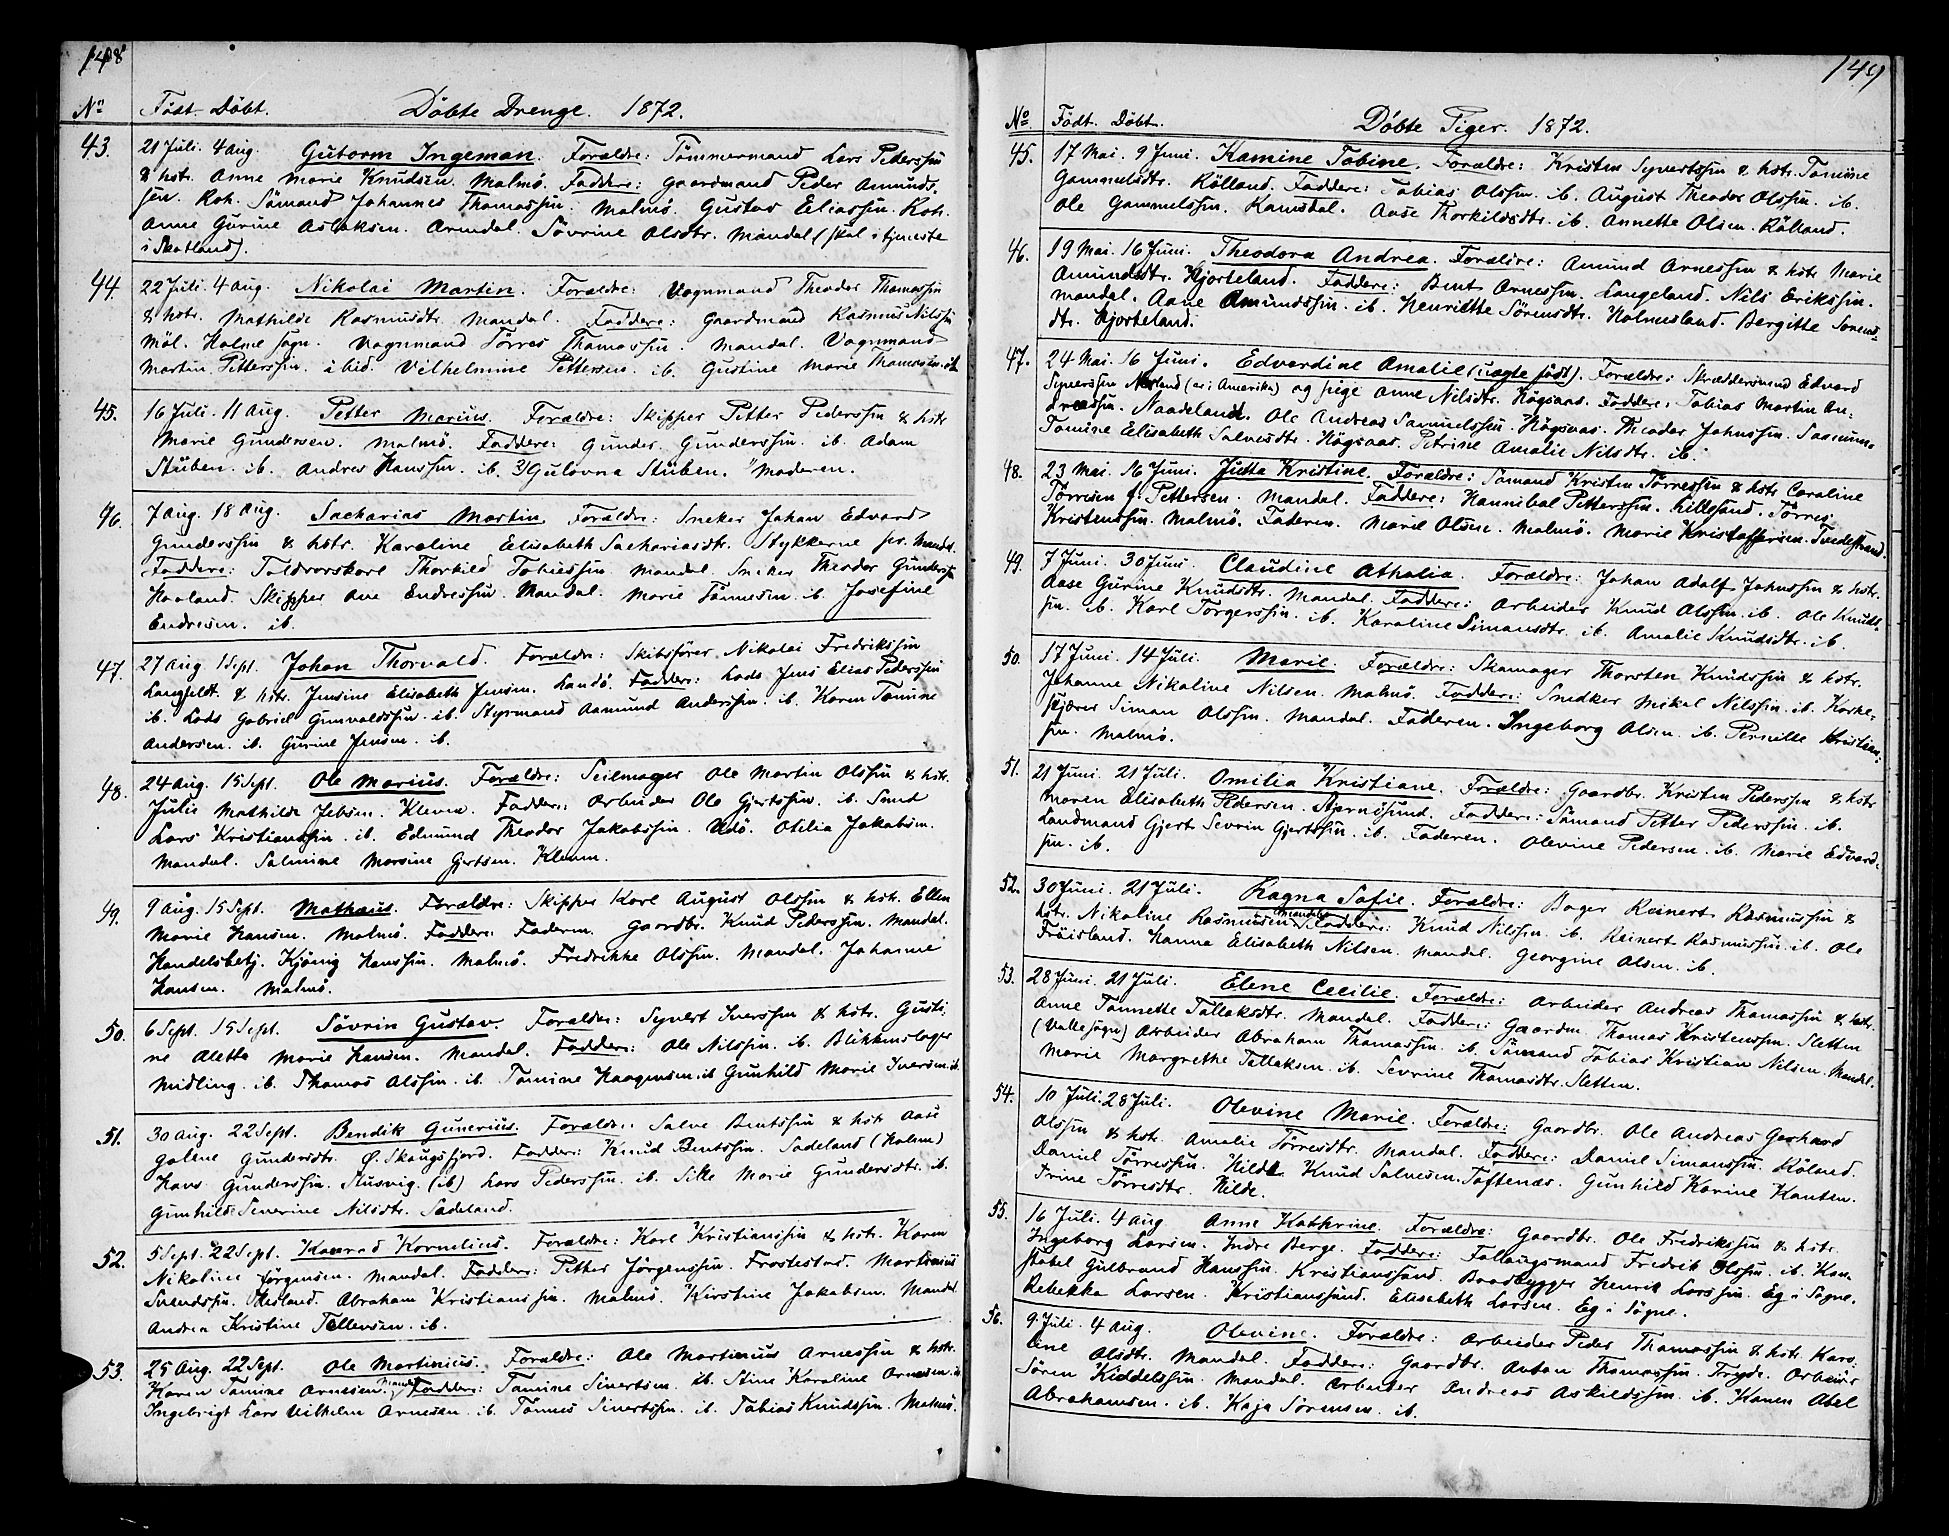 148
No Född. Döbt. Döbte Drenge. 1872.
43. 21 Juli. 4 Aug. Guttorm Ingeman. Forældre: Tömmermand Lars Pederssen
& hstr. Anne Marie Knudsen. Malmö. Faddere: Gaardmand Peder Amunds-
sen. Roh. Sömand Johannes Thomassen. Malmö. Gustav Eliassen. Roh.
Anne Gurine Aslaksen. Arendal. Sövrine Olsdtr. Mandal (skal i tjeneste
i Skotland).
44. 22 Juli. 4 Aug. Nikolai Martin. Forældre: Vognmand Theodor Thomassen
& hstr. Mathilde Rasmusdtr. Mandal. Faddere: Gaardmand Rasmus Nilssen
Möl. Holme Sogn. Vognmand Törres Thomassen. Mandal. Vognmand
Martin Petterssen. ibid. Vilhelmine Pettersen. ib. Gustine Marie Thomassen. ib.
45. 16 Juli. 11 Aug. Petter Marius. Forældre: Skipper Petter Pederssen & hstr
Marie Gundersen. Malmö. Faddere: Gunder Gunderssen. ib. Adam
Stüben. ib. Andres Hanssen. ib. Gulovna Stüben. Moderen.
46. 7 Aug. 18 Aug. Sacharias Martin. Forældre: Sneker Johan Edvard
Gunderssen & hstr. Karoline Elisabeth Sachariasdtr. Stykkerne pr. Mandal.
Faddere: Toldrorskarl Thorkild Tobiessen Mandal. Sneker Theodor Gunderssen
Haaland. Skipper Ane Endressen. Mandal. Marie Tönnesen. ib. Josefine
Endresen. ib.
47. 27 Aug. 1 Sept. Johan Thorvald. Forældre: Skibsförer Nikolai Fredrikssen
Langfeldt. & hstr. Jensine Elisabeth Jensen. Landö. Faddere: Lods Jens Elias Pederssen
ib. Lods Gabriel Gunvaldssen. ib. Styrmand Aamund Anderssen. ib. Karen Tomine
Andersen. ib. Gurine Jensen. ib.
48. 24 Aug. 15 Sept. Ole Marius. Forældre: Seilmager Ole Martin Olssen & hstr.
Julie Mathilde Jebsen. Kleven. Faddere: Arbeider Ole Gjertssen. ib. Smed
Lars Kristianssen. ib. Edmund Theodor Jakobssen. Udö. Otilia Jakobsen.
Mandal. Salmine Marsine Gjertsen. Kleven.
49. 9 Aug. 15 Sept. Mathæus. Forældre: Skipper Karl August Olssen & hstr. Ellen
Marie Hansen. Malmö. Faddere: Faderen. Gaardbr. Knud Pederssen. Mandal.
Handelsbetj. Kjönig Hanssen. Malmö. Fredrikke Olssen. Mandal. Johanne
Hansen. Malmö.
50. 6 Sept. 15 Sept. Sövrin Gustav. Forældre: Syvert Iverssen & hstr. Gusti-
ne Aletta Marie Hansen. Mandal. Faddere: Ole Nilssen. ib. Blikkenslager
Midling. ib. Thomas Olssen. ib. Tomine Haagensen. ib Gunhild Marie Iversen. ib.
51. 30 Aug. 22 Sept. Bendik Gunerius. Forældre: Salve Bentssen & hstr Aase
Golene Gundersdtr. Ö. Skaugsfjord. Faddere: Knud Bentssen. Sadeland (Holme)
Hans Gunderssen. Stusvig. (ib) Lars Pederssen. ib. Silke Marie Gundersdtr. ib.
Gunhild Severine Nilsdtr. Sadeland.
52. 5 Sept. 22 Sept. Konrad Kornelius. Forældre: Karl Kristianssen & hstr. Karen
Nikoline Jörgensen. Mandal. Faddere: Petter Jörgenssen. Frostestad. Martinius
Svendssen. Abraham Kristianssen. Malmö. Kirstine Jakobsen. Mandal.
Andrea Kristine Tellevsen. ib.
53. 25 Aug. 22 Sept. Ole Martinius. Forældre: Ole Martinius Arnessen & hstr.
Karen Tomine Arnesen. Mandal. Faddere: Tomine Sivertsen. ib. Stine Karoline Arnesen. ib
Ingebrigt Lars Vilhelm Arnesen. ib. Tönnes Sivertssen. ib. Tobias Knudssen. Malmö.
149
No. Född. Döbt. Döbte Piger. 1872.
45. 17 Mai. 9 Juni. Kamine Tobine. Forældre: Kristen Syvertssen & hstr. Tomine
Gammelsdtr. Rölland. Faddere: Tobias Olssen. ib. August Theodor Olssen. ib.
Ole Gammelssen. Ramsdal. Aase Thorkildsdtr. ib. Annette Olsen. Rölland.
46. 19 Mai. 16 Juni. Theodora Andrea. Forældre: Amund Arnessen & hstr Marie
Amundsdtr. Hjorteland. Faddere: Bent Arnessen. Langeland. Nils Erikssen.
Mandal. Aane Amundssen. ib. Henriette Sörensdtr. Holmesland. Bergitte Sörens-
dtr. Hjorteland.
47. 24 Mai. 16 Juni. Edvardine Amalie (uægte född). Forældre: Skræddersvend Edvard
Syverssen (nu i Amerika) og pige Anne Nilsdtr. Högsaas. Faddere: Tobias Martin An-
dreassen. Naadeland. Ole Andreas Samuelssen. Högsaas. Theodor Johnssen.
Tomine Elisabeth Salvesdtr. Högsaas. Petrine Amalie Nilsdtr. ib.
48. 23 Mai. 16 Juni. Jutta Kristine. Forældre: Sömand Kristen Törressen & hstr Caroline
Törresen f. Pettersen. Mandal. Faddere: Hannibal Petterssen. Lillesand. Törres
Kristenssen. Malmö. Faderen. Marie Olsen. Malmö. Marie Kristoffersen. Tvedestrand.
49. 7 Juni. 30 Juni. Claudine Athalia. Forældre: Johan Adolf Johnssen & hstr.
Aase Gurine Knudsdtr. Mandal. Faddere: Arbeider Knud Olssen. ib. Ole Knuds-
sen. ib. Karl Torgerssen. ib. Karoline Simonsdtr. ib. Amalie Knudsdtr. ib.
50. 17 Juni. 14 Juli. Marie. Forældre: Skomager Thorsten Knudssen & hstr.
Johanne Nikoline Nilsen. Malmö. Faddere: Snedker Mikal Nilssen. ib. Korke-
skjærer Simon Olssen. Mandal. Faderen. Ingeborg Olsen. ib. Pernille Kristian-
sen. Malmö.
51. 21 Juni. 21 Juli. Omilia Kristiane. Forældre: Gaardbr. Kristen Pederssen & hstr
Maren Elisabeth Pedersen. Stjernösund. Faddere: Sömand Petter Pederssen. ib.
Landmand Gjert Sevrin Gjertssen. ib. Faderen. Olevine Pedersen. ib. Marie Edvard-
sen. ib.
52. 30 Juni. 21 Juli. Ragna Sofie. Forældre: Bager Reinert Rasmussen &
hstr. Nikoline Rasmussen. Mandal. Faddere: Knud Nilssen. ib. Reinert Rasmussen. ib. Ole
Fröisland. Hanna Elisabeth Nilsen. Mandal. Georgine Olsen. ib.
53. 28 Juni. 21 Juli. Elene Cecilie. Forældre: Arbeider Andreas Thomassen & hstr.
Anne Tonnette Tallaksdtr. Mandal. Faddere: Gaardm. Thomas Kristenssen. Sletten
(Valle Sogn) Arbeider Abraham Thomassen. ib. Sömand Tobias Kristian Nilsen. Mandal.
Marie Margrethe Tallaksen. ib. Sevrine Thomasdtr. Sletten.
54. 10 Juli. 28 Juli. Olevine Marie. Forældre: Gaardbr. Ole Andreas Gerhard
Olssen & hstr. Amalie Törresdtr. Mandal. Faddere: Daniel Simonssen. Röland.
Daniel Törressen. Hilde. Knud Salvesen. Toftenæs. Gunhild Karine Hansen.
Trine Törresdtr. Hilde.
55. 16 Juli. 4 Aug Anne Kathrine. Forældre: Gaardbr. Ole Fredrikssen & hstr.
Ingeborg Larsen. Indre Berge. Faddere: Fallaugsmand Fredrik Olssen. ib. Kon-
stabel Gulbrand Hanssen. Kristianssand. Baadbygger Henrik Larssen. Eg i Sögne.
Rebekka Larsen. Kristianssand. Elisabeth Larsen. Eg i Sögne.
56. 9 Juli. 4 Aug. Olevine. Forældre: Arbeider Peder Thomassen & hstr. Karo-
line Olsdtr. Mandal. Faddere: Gaardbr. Anton Thomassen. Tryde. Arbeider
Sören Kiddelssen. Mandal. Arbeider Andreas Askildssen. ib. Karen Abel
Abrahamsen. ib. Kaja Sörensen. ib.